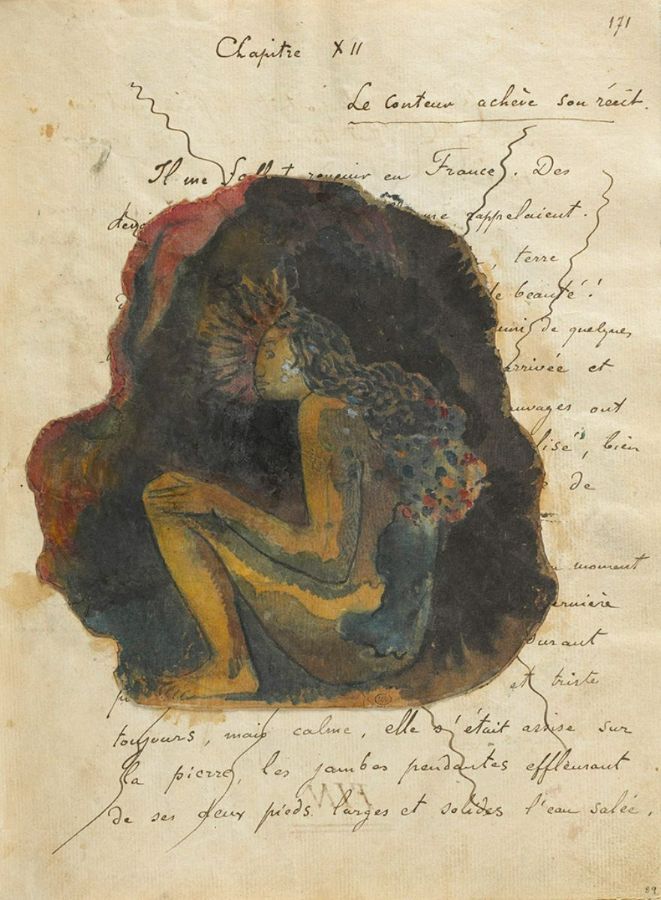 171
Chapitre XII
Le conteur achève son récit.
Il me revenir en France. Des
me rappelaient.
, terre
beauté!
de quelques
arrivée et
ont
, bien
de
moment
et triste
toujours, mais calme, elle s'était assise sur
la pierre, les jambes pendantes effleurant
de ses deux pieds larges et solides l'eau salée.
89